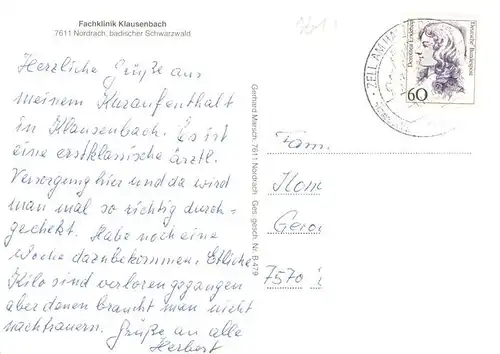 Fachklinik Klausenbach
7611 Nordrach, badischer Schwarzwald
Herzliche Grüße aus
meinem Kuraufenthalt
in Klausenbach. Es ist
eine erstklassische ärztl.
Versorgung hier und da wird
man mal so richtig durch=
gecheckt. Habe noch eine
Woche dazubekommen. Etliche
Kilo sind verlorengegangen
aber denen braucht man nicht
nachtrauern. Grüße an alle
Herbert
Gerhard Marsch, 7611 Nordrach Ges. gesch. Nr. B 479
ZELL AM HA
Deutsche Bundespost
60
Fam.
7570